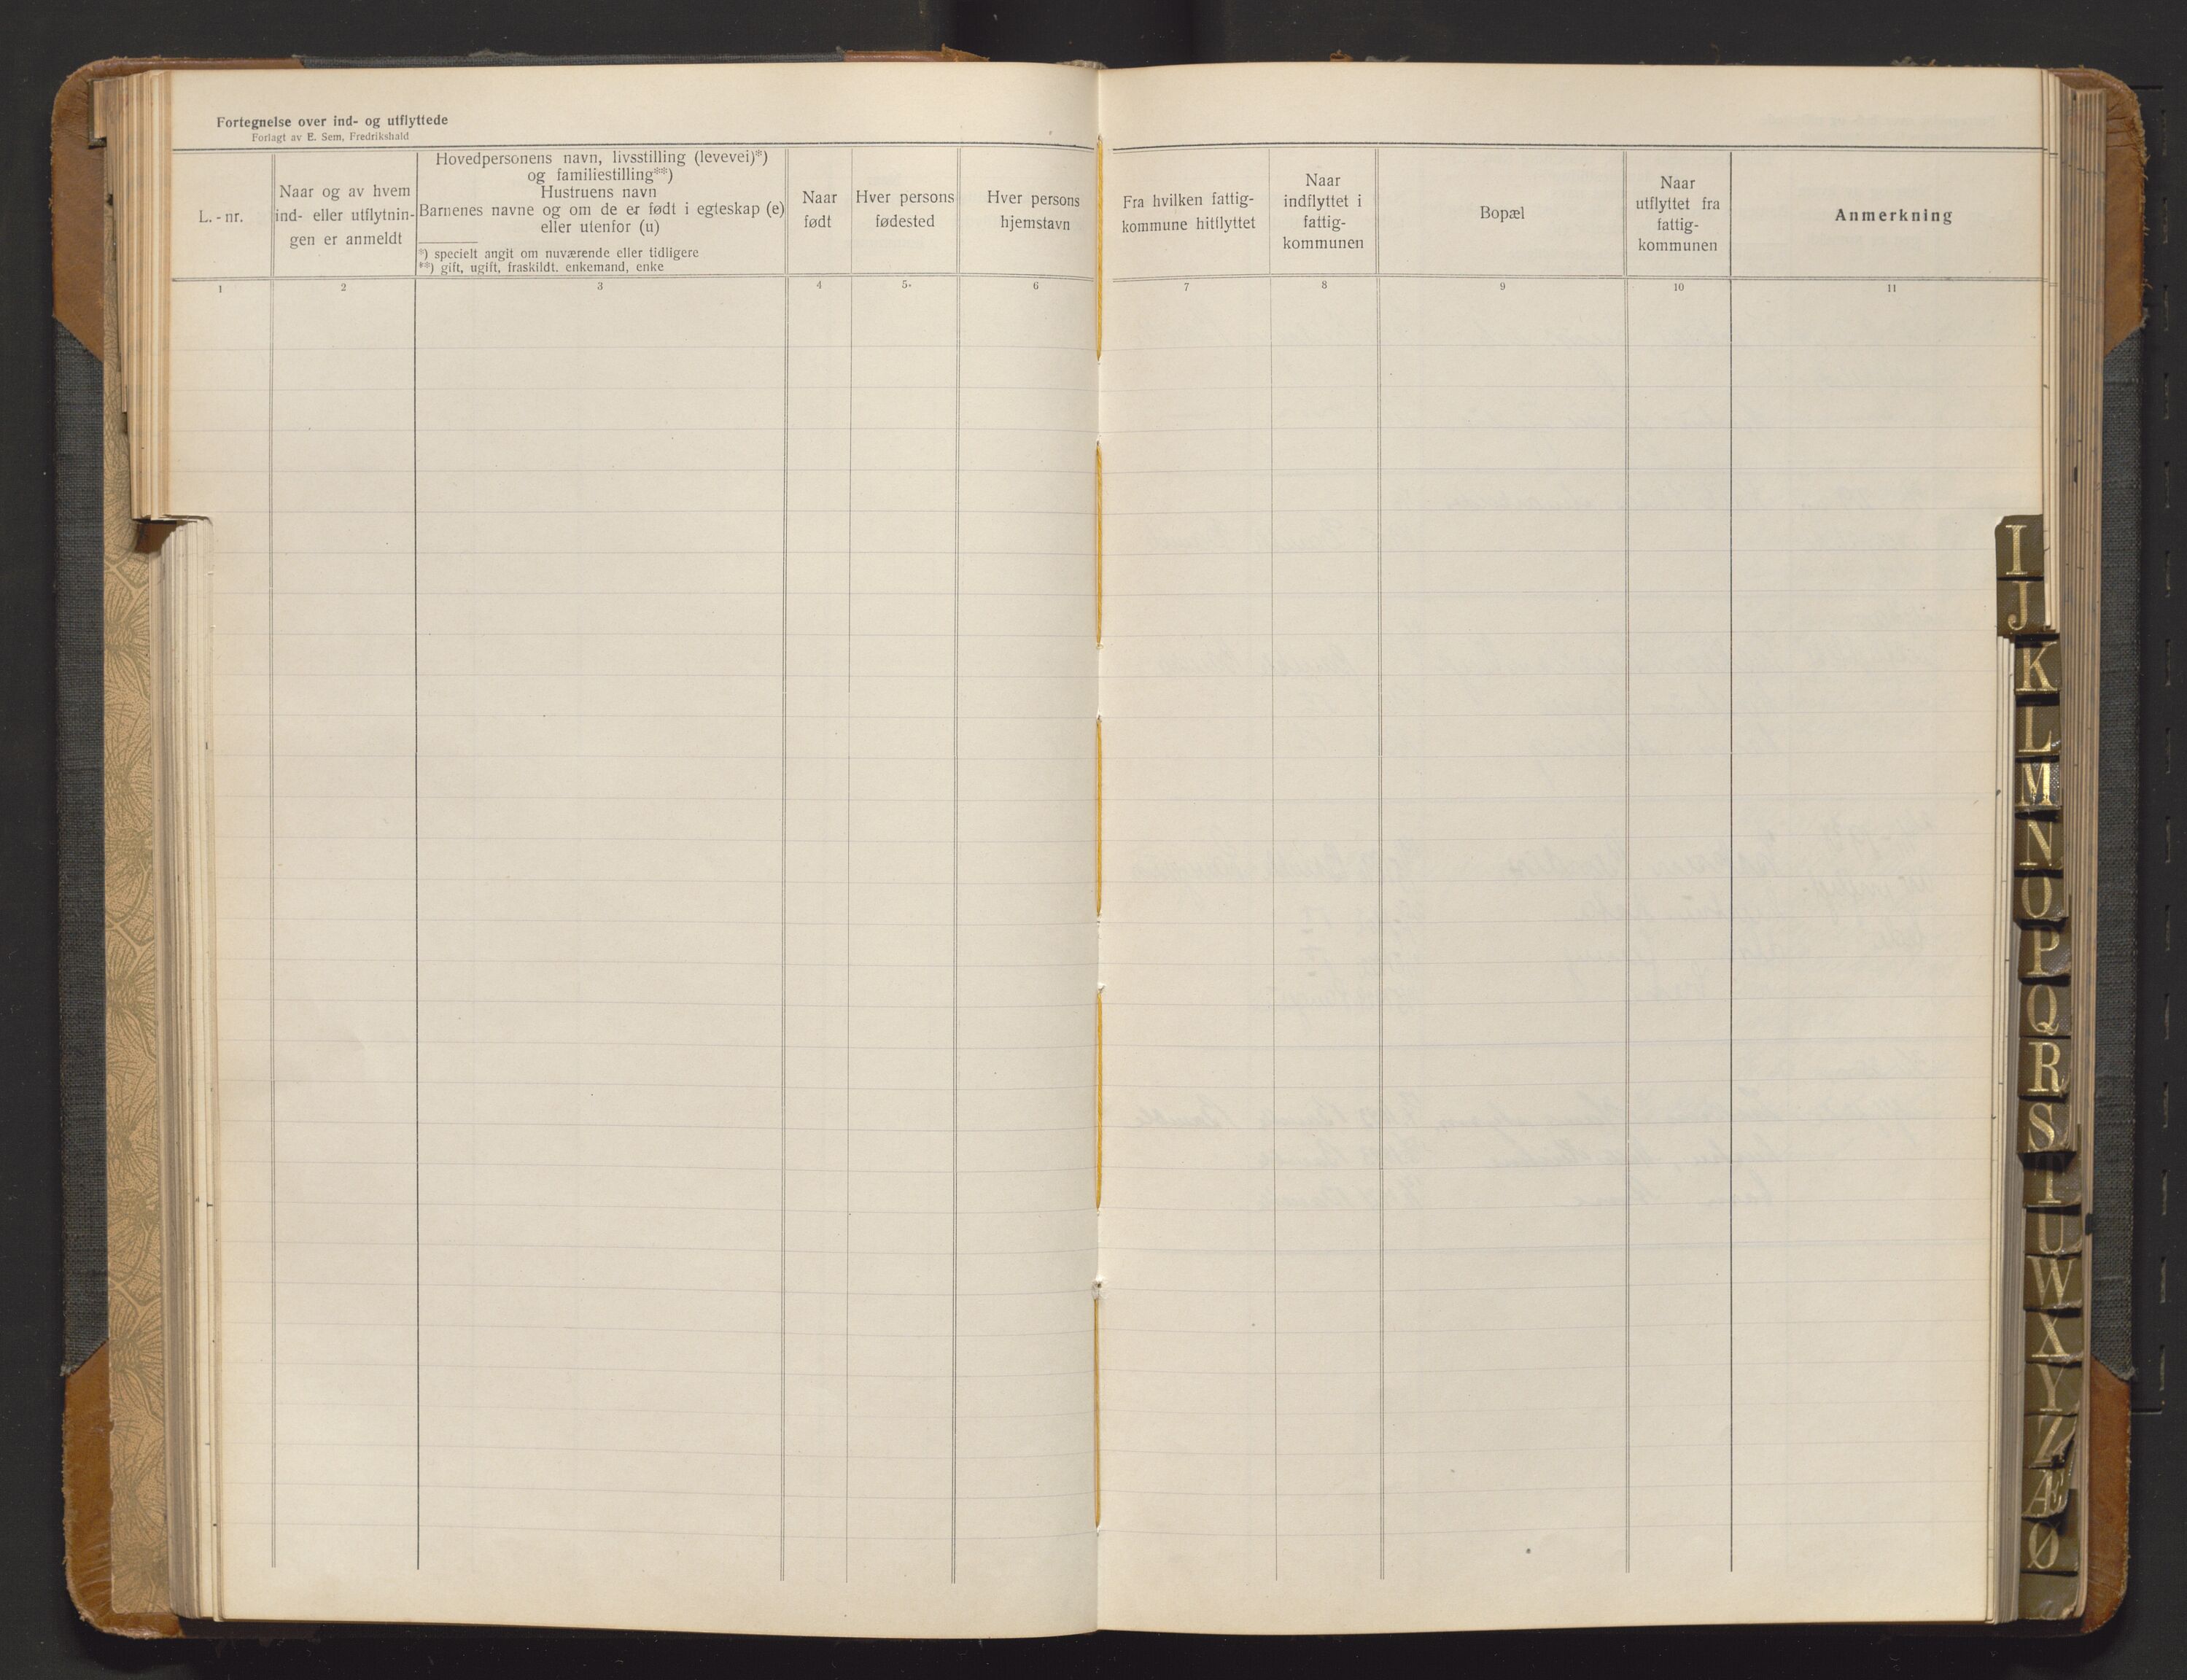 Fortegnelse over ind- og utflyttede
Forlagt av E. Sem, Fredrikshald
L. - nr.
Naar og av hvem
ind- eller utflytnin-
gen er anmeldt
Hovedpersonens navn, livsstilling (levevei)*)
og familiestilling**)
Hustruens navn
Barnenes navne og om de er født i egteskap (e)
eller utenfor (u)
*) specielt angit om nuværende eller tidligere
**) gift, ugift, fraskildt. enkemand, enke
Naar
født
Hver persons
fødested
Hver persons
hjemstavn
Fra hvilken fattig-
kommune hitflyttet
Naar
indflyttet i
fattig-
kommunen
Bopæl
Naar
utflyttet fra
fattig-
kommunen
Anmerkning
1 2 3 4 5. 6 7 8 9 10 11
I
J
K
L
M
N
O
P
Q
R
S
T
U
W
X
Y
Z
Æ
Ø